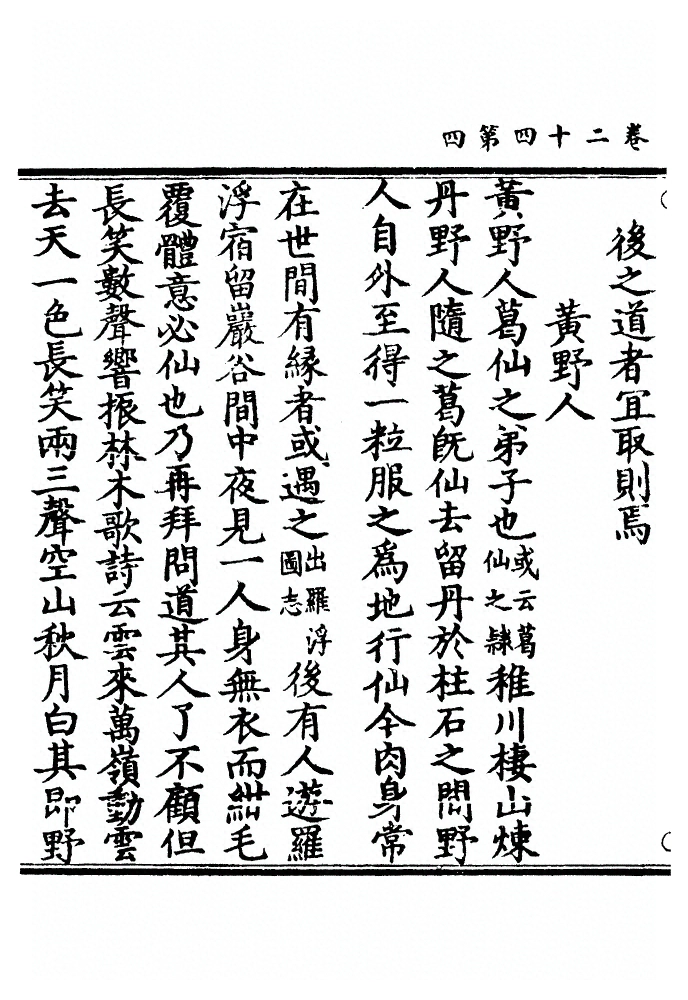 卷二十四第四
後之道者宜取則焉
黃野人
黃野人葛仙之弟子也或云葛仙之隸稚川棲山煉
丹野人隨之葛旣仙去留丹於柱石之間野
人自外至得一粒服之爲地行仙今肉身常
在世間有緣者或遇之出羅浮圖志後有人遊羅
浮宿留巖谷間中夜見一人身無衣而紺毛
覆體意必仙也乃再拜問道其人了不顧但
長笑數聲響振林木歌詩云雲來萬嶺動雲
去天一色長笑兩三聲空山秋月白其卽野